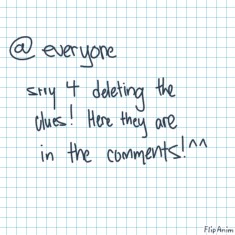 @ everyone
srry 4 deleting the
clues! Here they are
in the comments!^^
FlipAnim